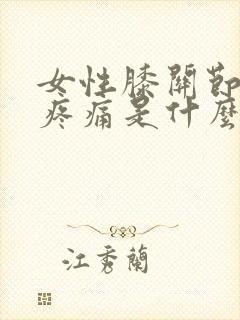 女性膝關節
疼痛是什麼
江秀蘭